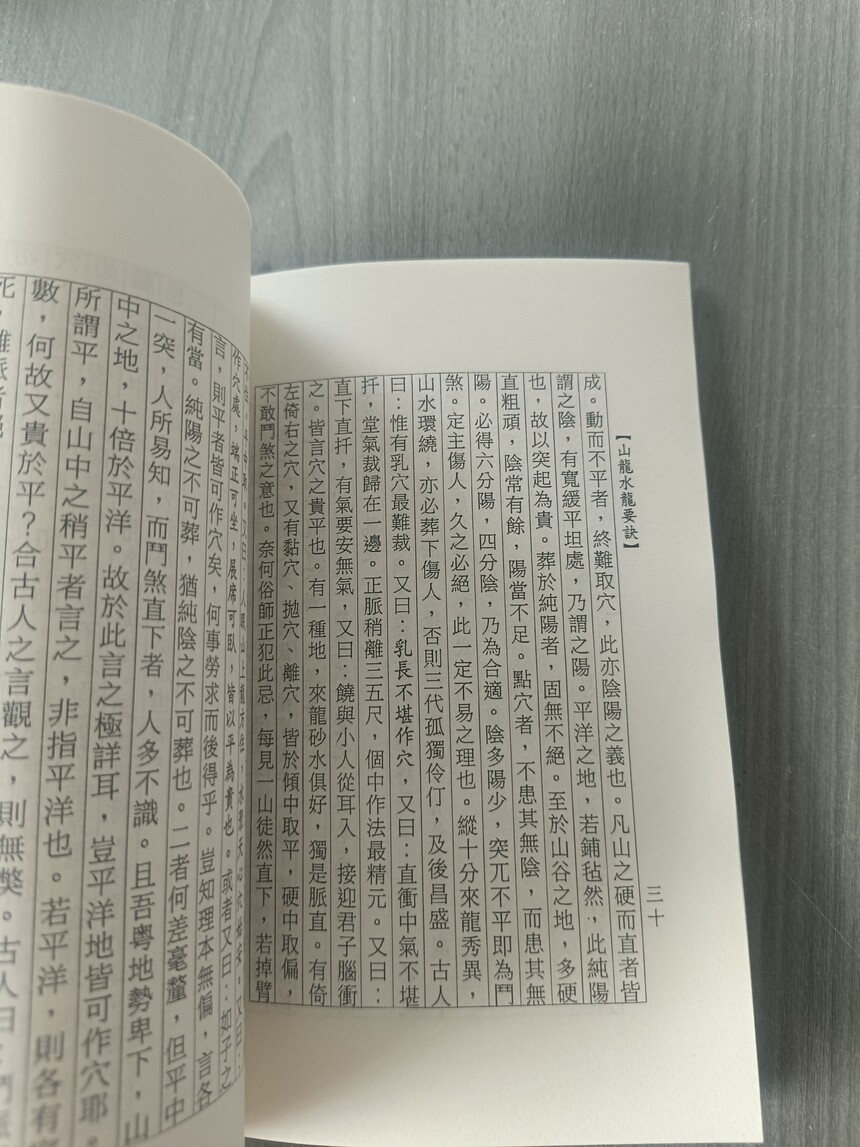 【山龍水龍要訣】
三十
成。動而不平者，終難取穴，此亦陰陽之義也。凡山之硬而直者皆
謂之陰，有寬緩平坦處，乃謂之陽。平洋之地，若鋪毡然，此純陽
也，故以突起為貴。葬於純陽者，固無不絕。至於山谷之地，多硬
直粗頑，陰常有餘，陽當不足。點穴者，不患其無陰，而患其無
陽。必得六分陽，四分陰，乃為合適。陰多陽少，突兀不平即為鬥
煞。定主傷人，久之必絕，此一定不易之理也。縱十分來龍秀異，
山水環繞，亦必葬下傷人，否則三代孤獨伶仃，及後昌盛。古人
曰：惟有乳穴最難裁。又曰：乳長不堪作穴，又曰：直衝中氣不堪
扦，堂氣裁歸在一邊。正脈稍離三五尺，個中作法最精元。又曰：
直下直扦，有氣要安無氣，又曰：饒與小人從耳入，接迎君子腦衝
之。皆言穴之貴平也。有一種地，來龍砂水俱好，獨是脈直。有倚
左倚右之穴，又有黏穴、拋穴、離穴，皆於傾中取平，硬中取偏，
不敢鬥煞之意也。奈何俗師正犯此忌，每見一山徒然直下，若掉臂
作穴處，端正可坐，展席可臥，皆以平為貴也。或者又曰：如子之
言，則平者皆可作穴矣，何事勞求而後得乎。豈知理本無偏，言各
有當。純陽之不可葬，猶純陰之不可葬也。二者何差毫釐，但平中
一突，人所易知，而鬥煞直下者，人多不識。且吾粵地勢卑下，山
中之地，十倍於平洋。故於此言之極詳耳，豈平洋地皆可作穴耶。
所謂平，自山中之稍平者言之，非指平洋也。若平洋，則各有
數，何故又貴於平？合古人之言觀之，則無弊。古人曰：鬥